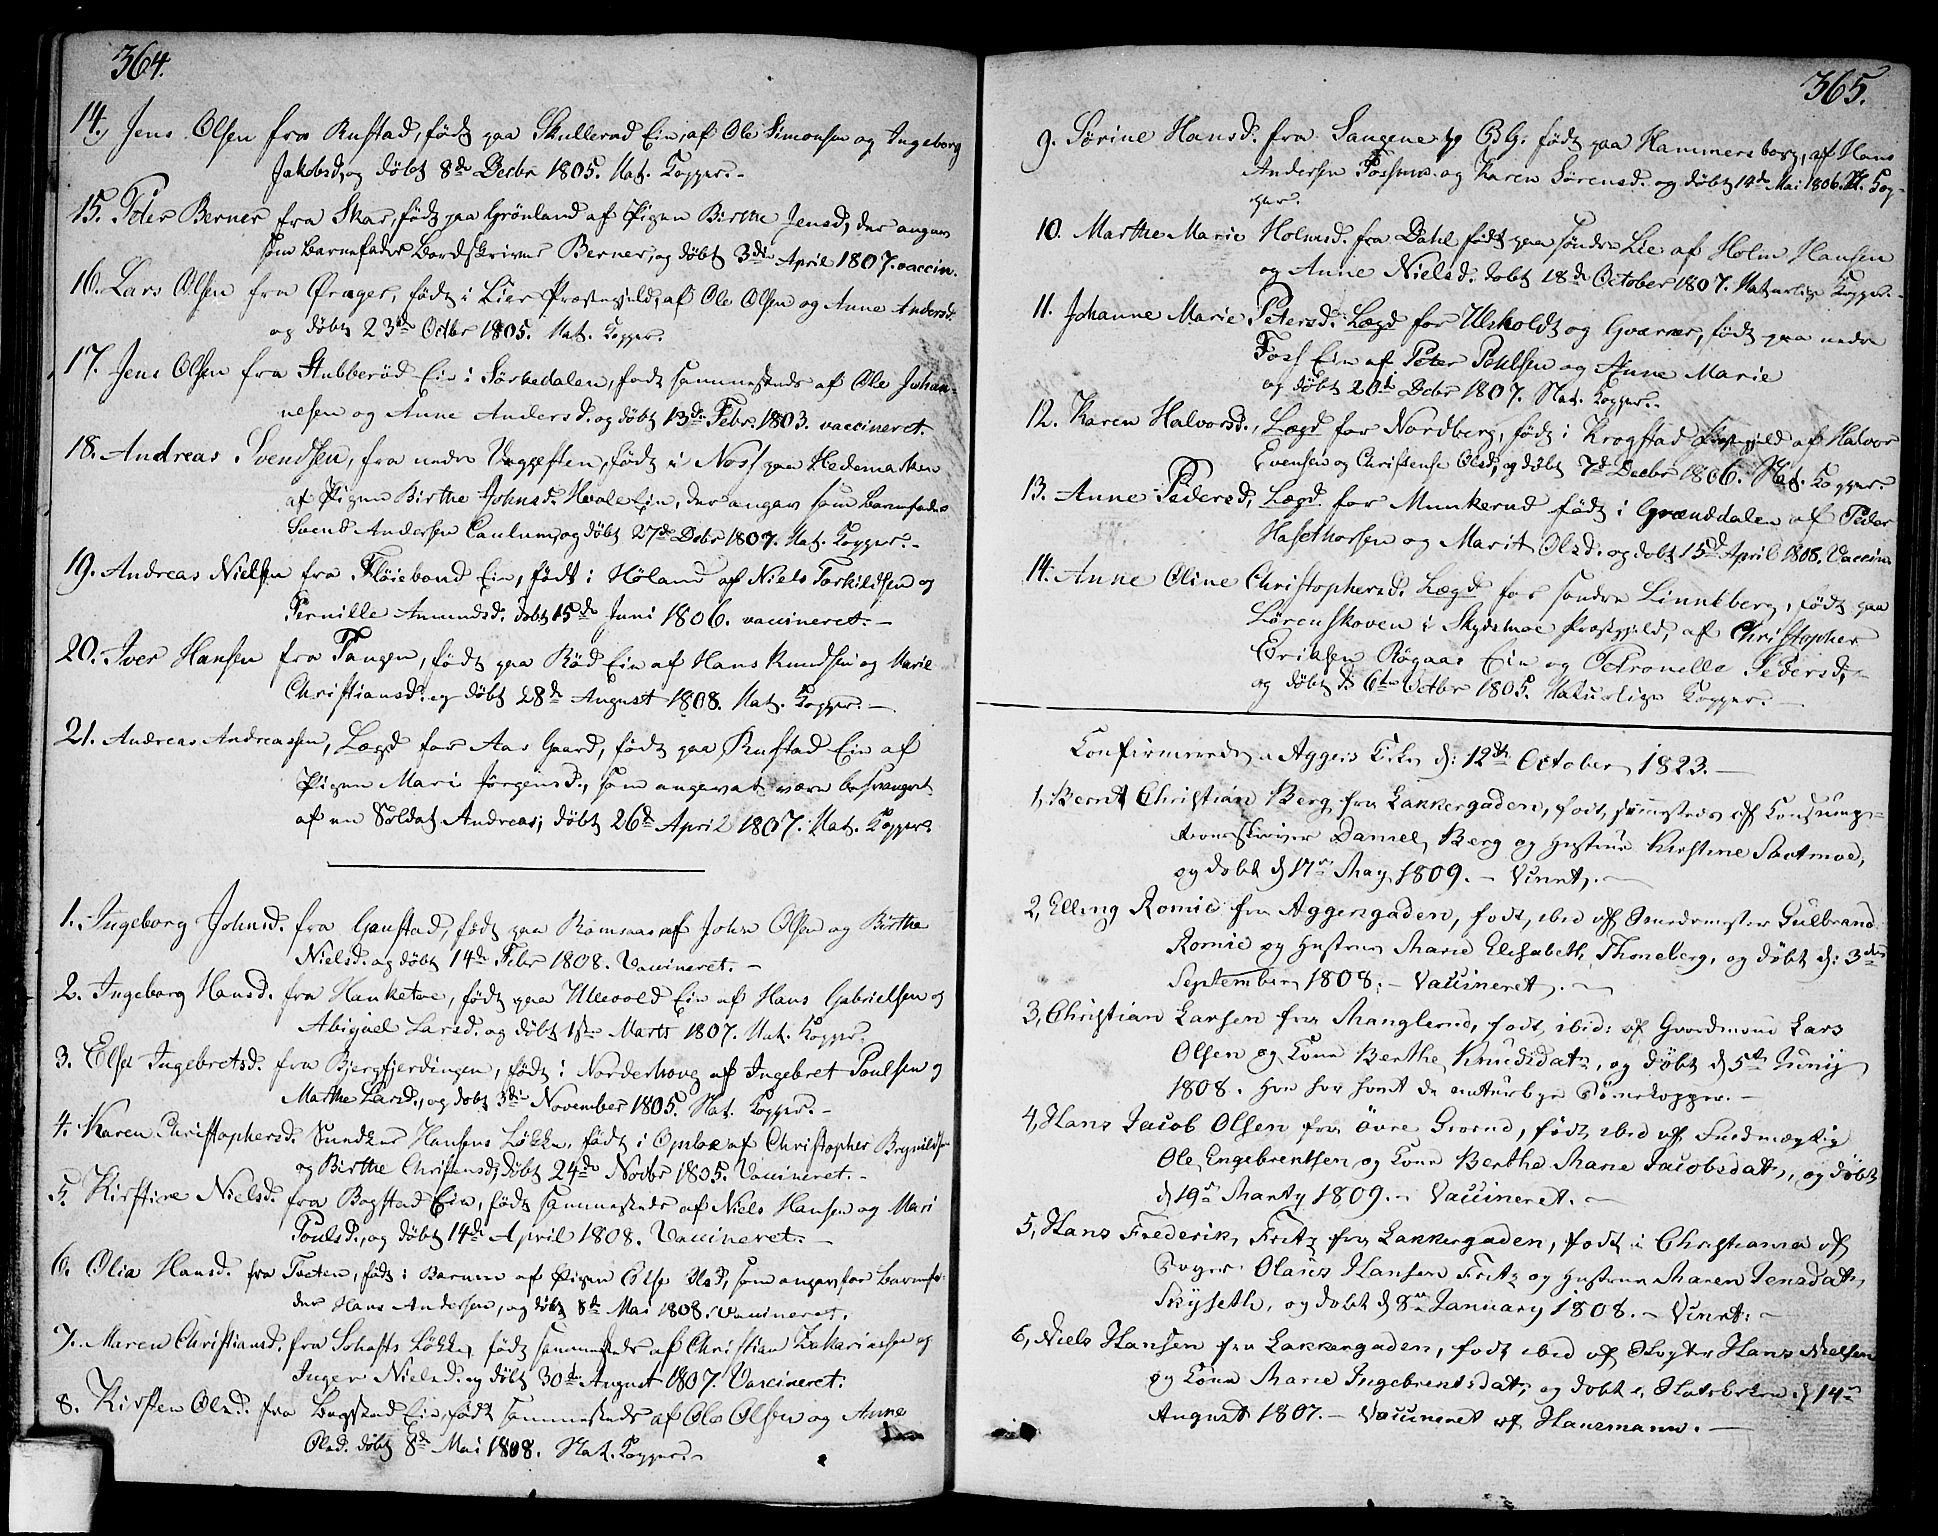 364.
14, Jens Olsen fra Rustad, født paa Skullerud Eie, af Ole Simonsen og Ingeborg
Jakobsd, og døbt 8de Decbr 1805. Nat. Kopper.
15. Peter Berner fra Skar, født paa Grönland af Pigen Birthe Jensd, der angav
som Barnefader Bordskriver Berner, og døbt 3die April 1807. vaccin.
16. Lars Olsen fra født i Lier Præstegjeld, af Ole Olsen og Anne Andersd.
og døbt 23de Octbr 1805. Nat. Kopper.
17. Jens Olsen fra Stubberöd Eie i Sörkedalen, født sammesteds af Ole Johan-
nesen og Anne Andersd. og döbt 13de Febr. 1803. vaccineret.
18. Andreas Svendsen, fra nedre født i Næss paa Hedemarken
af Pigen Birthe Johnsd. Eie, der angav som Barnefader
Svend Andersen og døbt 27de Decbr 1807. Nat. Kopper.
19. Andreas Nielsen fra Eie, født i Höland af Niels Torkildsen og
Pernille Amundsd. døbt 15de Juni 1806. vaccineret.
20. Iver Hansen fra Tangen, født paa Röd Eie af Hans Knudsen og Marie
Christiansd. og døbt 28de August 1808. Nat. Kopper.
21. Andreas Andreassen, Lægd for Aas Gaard, født paa Rustad Eie af
Pigen Mari Jörgensd., som angevet være besvangret
af en Soldat Andreas; døbt 26de April 1807. Nat. Kopper.
1. Ingeborg Johnsd. fra Gaustad, født paa af John Olsen og Birthe
Nielsd. og døbt 14de Febr 1808. Vaccineret.
2. Ingeborg Hansd. fra født paa Ullevold Eie af Hans Gabrielsen og
Abigael Larsd. og døbt 1ste Marts 1807. Nat. Kopper.
3. Else Ingebretsd. fra Bjergfjerdingen, født i Norderhoug af Ingebret Poulsen og
Marthe Larsd., og døbt 3die November 1805. Nat. Kopper.
4. Karen Christophersd. Hansens Løkke, født i Opsloe af Christopher Brynildsen
og Birthe Christensd, døbt 24de Novbr 1805. Vaccineret.
5. Kirstine Nielsd. fra Bogstad Eie, født sammesteds af Niels Hansen og Mari
Poulsd., og døbt 14de April 1808. Vaccineret.
6. Olia Hansd. fra født i Barum af Pigen Else Olsd, som angav for Barnefa-
der Hans Andersen, og døbt 8de Mai 1808. Vaccineret.
7. Maren Christiansd. fra Løkke, født sammesteds af Christian Zakariasen og
Inger Nielsd. og døbt 30de August 1807. Vaccineret.
8. Kirsten Olsd. fra Bogstad Eie, født sammesteds af Ole Olsen og Anne
Olsd. døbt 8de Mai 1808. Nat. Kopper.
365.
9. Sörine Hansd. fra født paa Hammersborg, af Hans
Andersen og Karen Sörensd. og døbt 14de Mai 1806. N. Kop-
per.
10. Marthe Marie Holmsd. fra Dahl født paa söndre Lie af Holm Hansen
og Anne Nielsd. døbt 18de October 1807. Naturlige Kopper.
11. Johanne Marie Petersd. Lægd for Ulsholdt og født paa nedre
Foss Eie af Peter Pohlsen og Anne Marie
og døbt 20de Decbr 1807. Nat. Kopper.
12. Karen Halvorsd., Lægd for Nordberg, født i Krogstad Præstegjeld af Halvor
Evensen og Christense Olsd, og døbt 7de Decbr 1806. Nat. Kopper.
13. Anne Pedersd, Lægd for Munkerud født i Grønddalen af Peder
og Marit Olsd. og døbt 15de April 1808. Vaccin.
14. Anne Oline Christophersd. Lægd for søndre Linneberg, født paa
Lörenskoven i Skydsmoe Præstgjeld, af Christopher
Eriksen Eie og Petronelle Pedersd,
og døbt d 6te Octbr 1805. Naturlige Kopper.
Confirmerede i Aggers Kirke d: 12te October 1823.
1, Bernt Christian Berg fra Lakkergaden, født sammesteds af Consump-
tionsskriver Daniel Berg og Hustrue Kirstine Sactmoe,
og døbt d 17de May 1809. - Vccnt.
2, Elling Romie fra Aggersgaden, født ibid af Snedkermester Gulbrand
Romie og Hustrue Marie Elisabeth Thoneberg, og døbt d: 3die
September 1808. - Vaccineret.
3, Christian Larsen fra Manglerud, født ibid: af Gaardmand Lars
Olsen og Kone Berthe Knudsdatr, og døbt d 5te Junij
1808. Han har havt de naturlige Börnekopper.
4, Hans Jacob Olsen fra övre Grorud, født ibid af
Ole Engebrentsen og Kone Berthe Marie Jacobsdatr, og døbt
d 19de Martij 1809. - Vaccineret.
5, Hans Frederik Fritz fra Lakkergaden, født i Christiania af
Olaus Hansen Fritz og Hustrue Maren Jensdatr
Skyseth, og døbt d 8de January 1808. - Vccnt:
6, Niels Hansen fra Lakkergaden, født ibid af Slagter Hans Nielsen
og Kone Marie Ingebrentsdatr, og døbt i Slotskirken d 14de
August 1807. - Vaccineret af Hanemann.